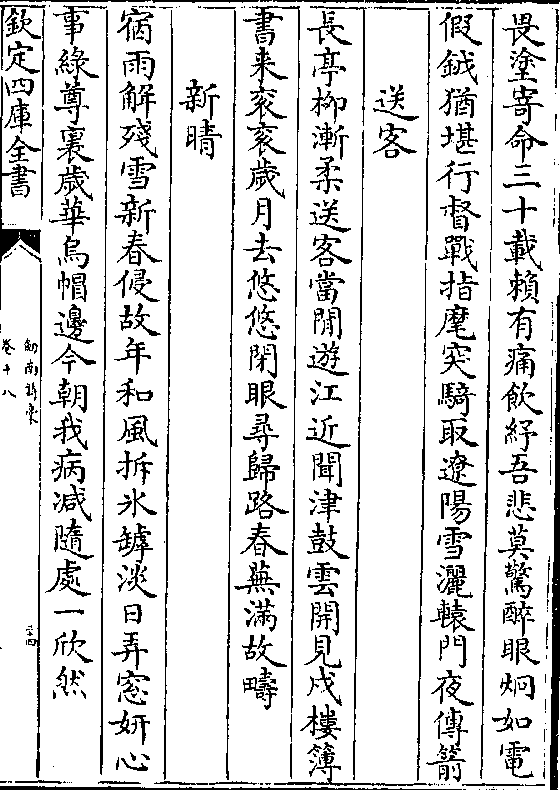 畏塗寄命三十載頼有痛飲紓吾悲莫驚醉眼炯如電
假鉞猶堪行督戰指麾突騎取遼陽雪灑轅門夜傳箭
送客
長亭柳漸柔送客當閒遊江近聞津鼓雲開見戍樓簿
書来衮衮歲月去悠悠閉眼尋歸路春蕪滿故疇
新晴
宿雨解殘雪新春侵故年和風拆氷罅淡日弄窓妍心
事緑尊裏歲華烏帽邊今朝我病减隨處一欣然
欽定四庫全書
劒南詩稾
卷十八
三四